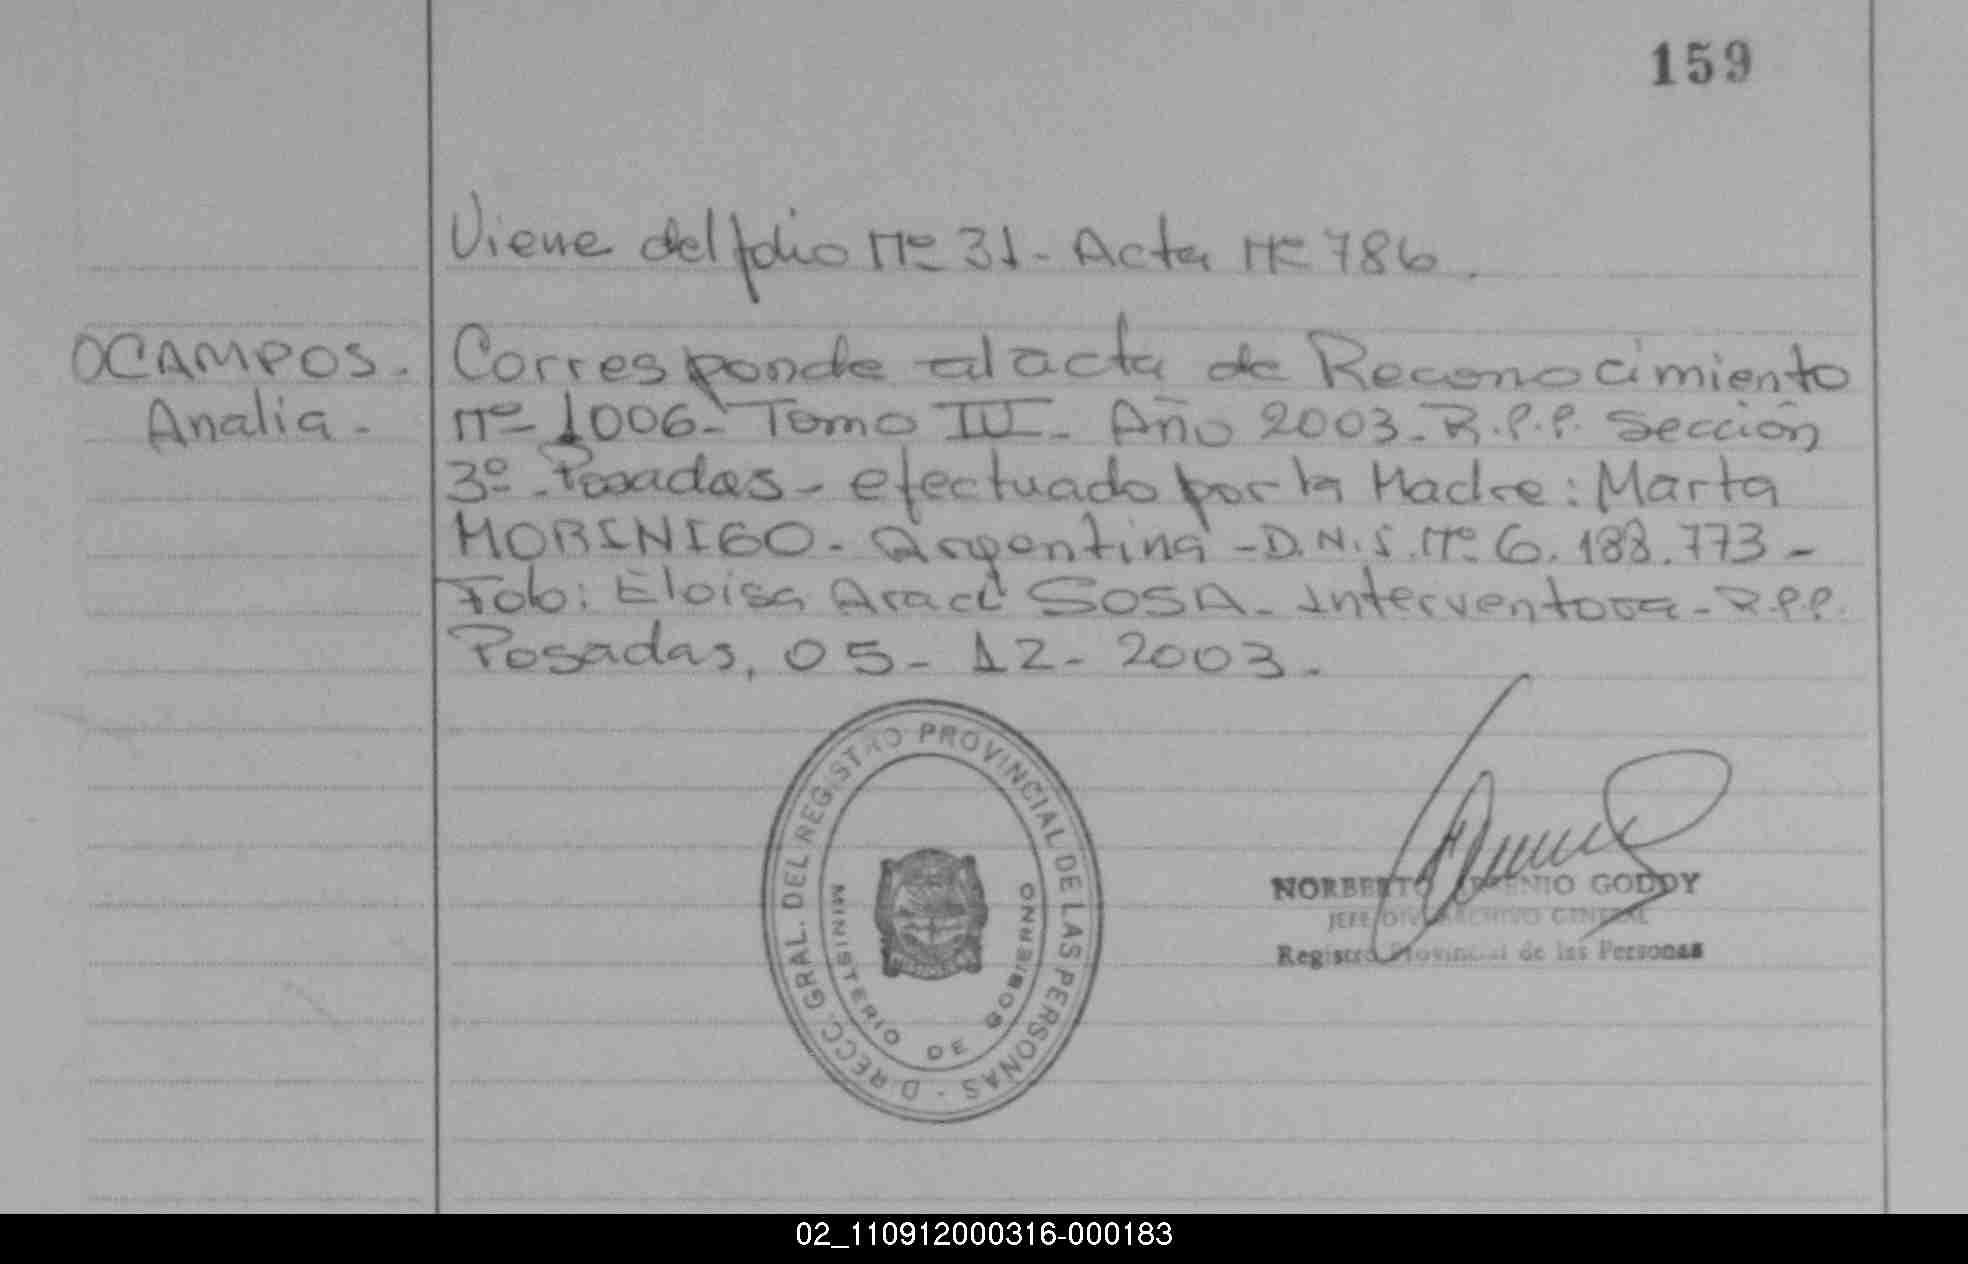 159
Viene del folio Nº 31 - Acta Nº 786.
OCAMPOS.
Analia -
Corresponde al acta de Reconocimiento
Nº 1006 - Tomo IV - Año 2003 - R.P.P. Sección
3º - Posadas - efectuado por la Madre: Marta
MORINIGO - Argentina - D.N.I. Nº 6.188.773 -
Fdo: Eloisa Araci SOSA - Interventora - R.P.P.
Posadas, 05 - 12 - 2003 -
DIRECC. GRAL. DEL REGISTRO PROVINCIAL DE LAS PERSONAS -
MINISTERIO DE GOBIERNO
NORBERTO GODOY
JEFE DIV. ARCHIVO GENERAL
Registro Provincial de las Personas
02_110912000316-000183